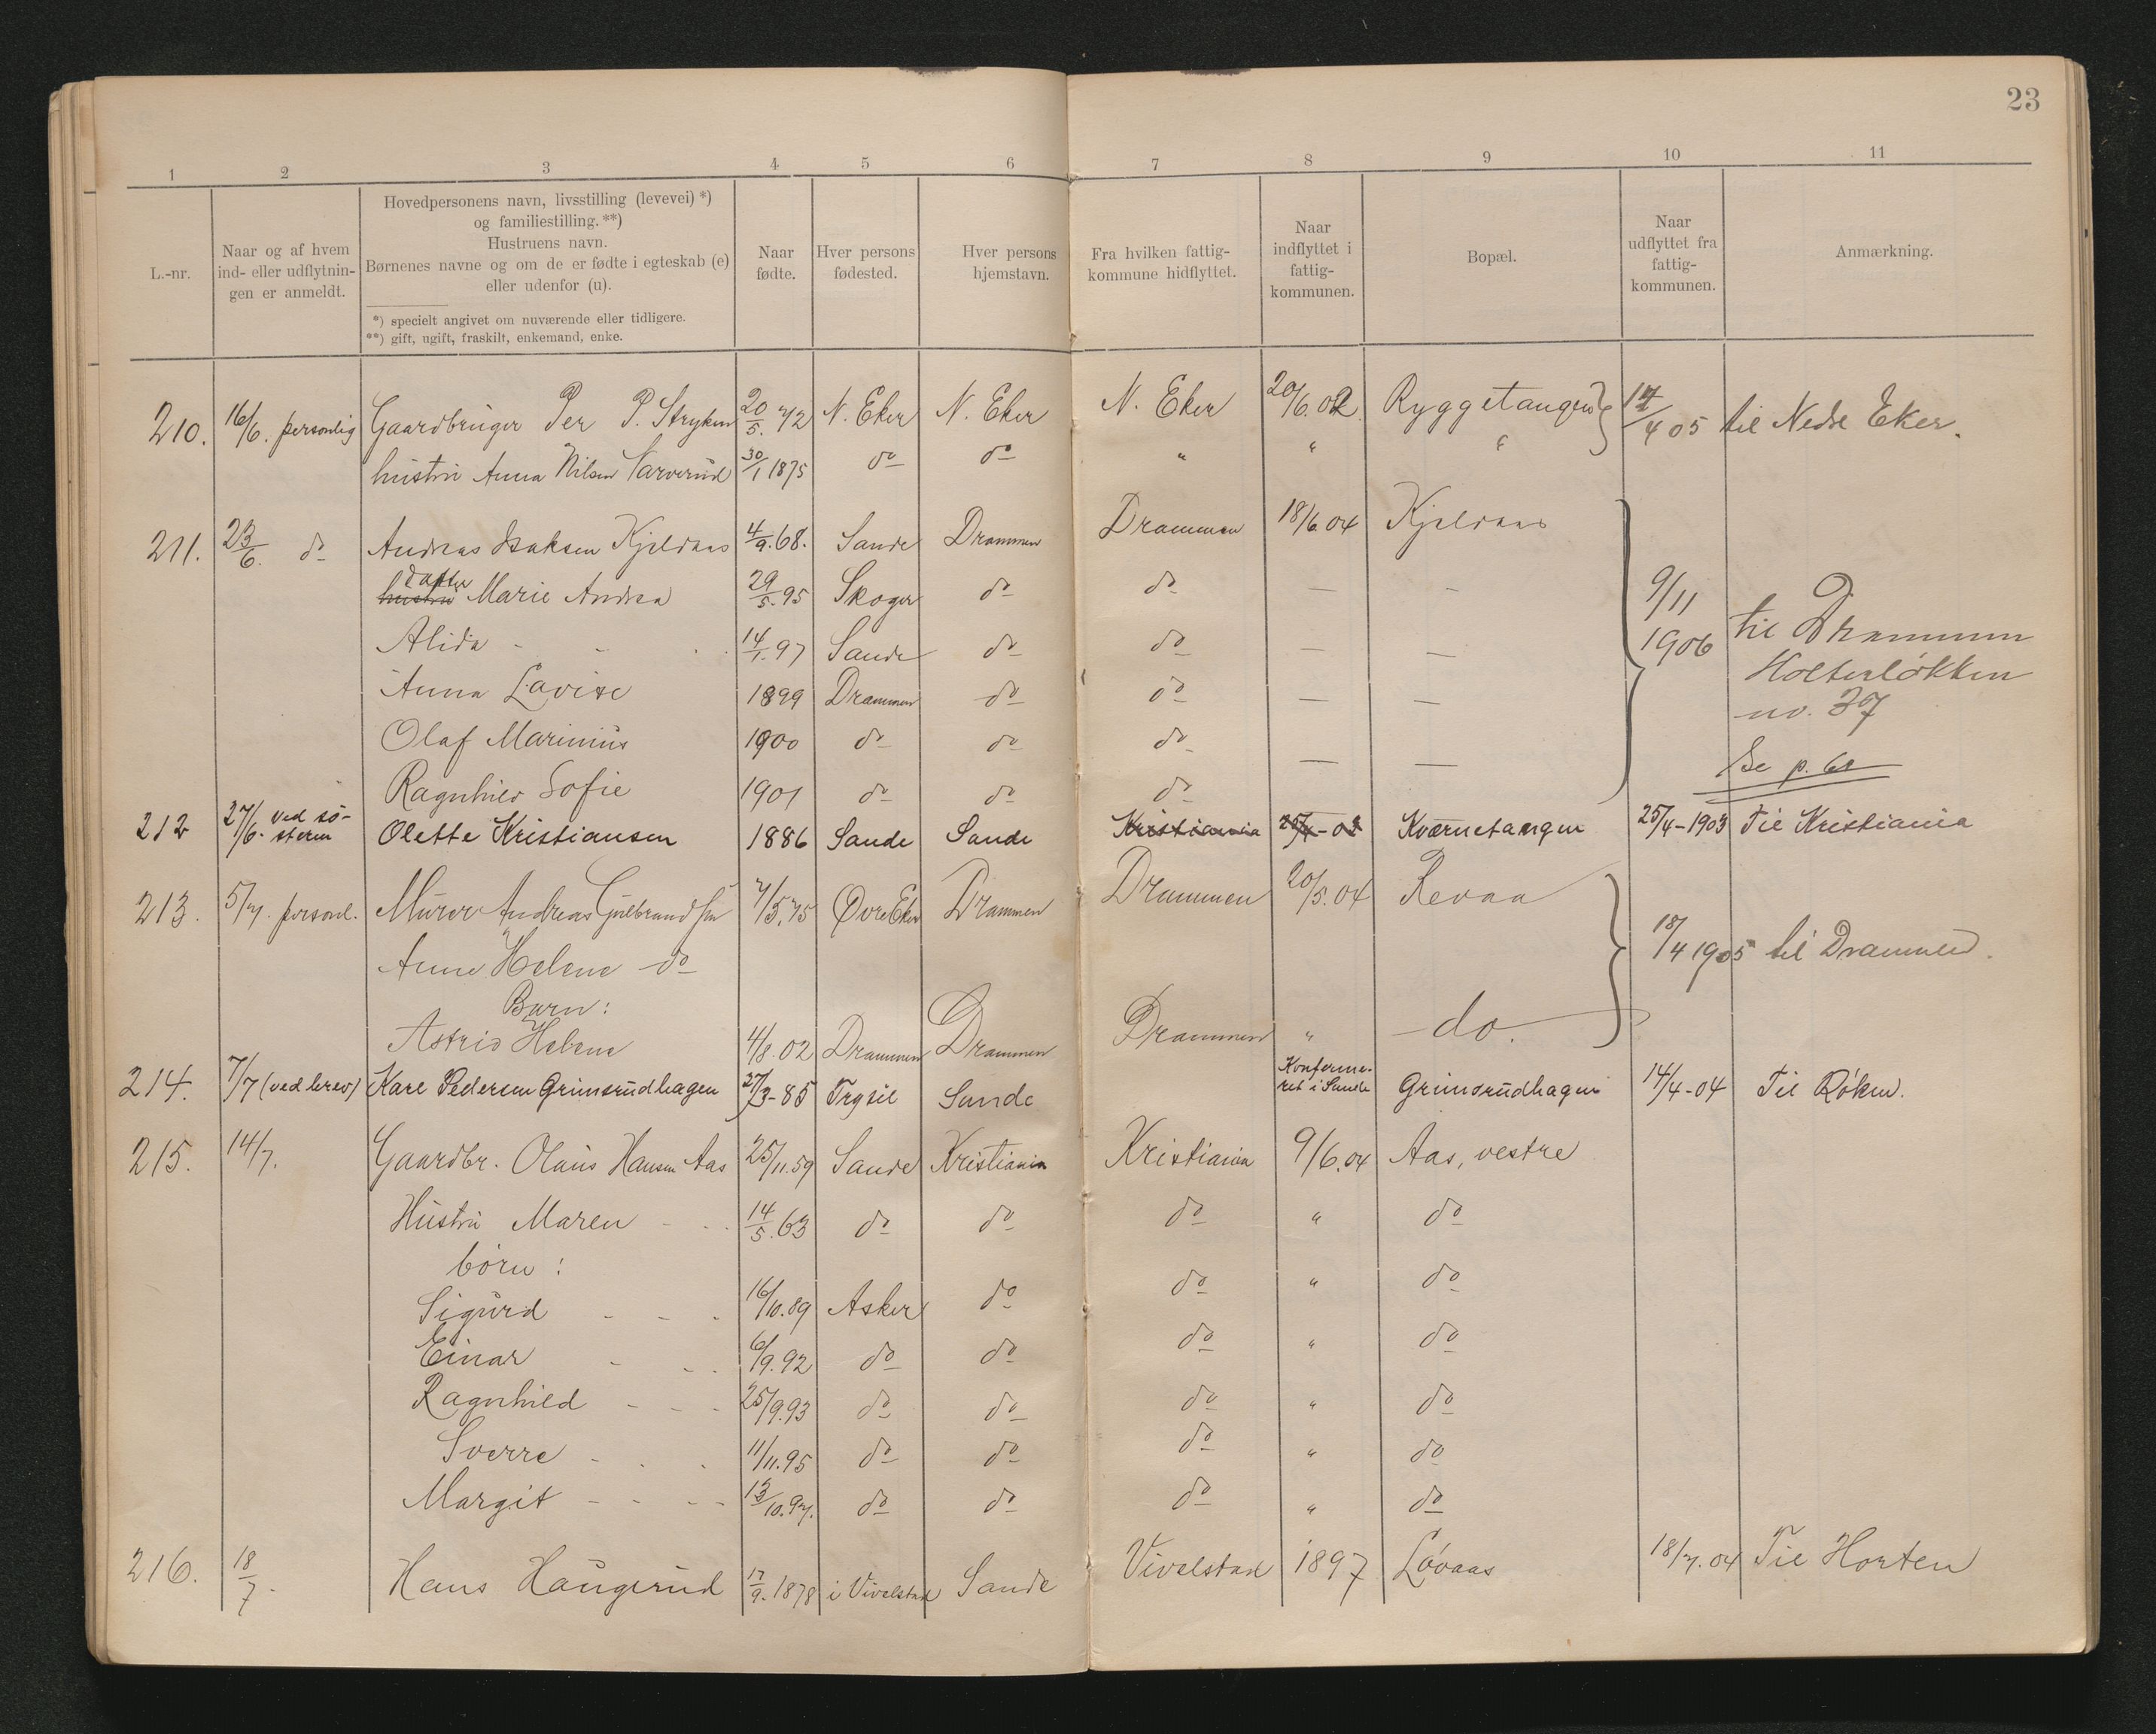 23
1 2 3 4 5 6 7 8 9 10 11
L.-nr.
Naar og af hvem
ind- eller udflytnin-
gen er anmeldt.
Hovedpersonens navn, livsstilling (levevei) *)
og familiestilling. **)
Hustruens navn.
Børnenes navne og om de er fødte i egteskab (e)
eller udenfor (u).
*) specielt angivet om nuværende eller tidligere.
**) gift, ugift, fraskilt, enkemand, enke.
Naar
fødte.
Hver persons
fødested.
Hver persons
hjemstavn.
Fra hvilken fattig-
kommune hidflyttet.
Naar
indflyttet i
fattig-
kommunen.
Bopæl.
Naar
udflyttet fra
fattig-
kommunen.
Anmærkning.
210. 16/6. personlig Gaardbruger Per P. Stryken 20/5. 72 N. Eker N. Eker N. Eker 20/6.02 Ryggetangen 17/4 05 til Nedre Eker.
hustru Anna Nilsen Varverud 30/1 1875 do do " " "
211. 23/6. do Andreas Isaksen Kjeldaas 4/9.68. Sande Drammen Drammen 18/6.04 Kjeldaas
datter
hustru Marie Andrea 29/5.95 Skoger do do — - 9/11
Alida - - - 14/1.97 Sande do do — — 1906 til Drammen
Anna Lavise 1899 Drammen do do — — Holterløkken
no. 37
Olaf Marinius 1900 do do do — —
Se p. 60
Ragnhild Sofie 1901 do do do
212 27/6. ved sø-
steren Olette Kristiansen 1886 Sande Sande Kristiania 25/4-03 Kværnetangen 25/4-1903 Til Kristiania
213. 5/7. personl. Murer Andreas Gulbrandsen 7/5.75 Øvre Eker Drammen Drammen 20/5.04 Revaa
Anne Helene do 18/4 1905 til Drammen.
Barn:
Astrid Helene 4/8.02 Drammen Drammen Drammen " do.
214. 7/7 (ved brev) Kare Pedersen Grimsrudhagen 27/3-85 Trysil Sande Konfirme-
ret i Sande Grimsrudhagen 14/4-04 Til Røken.
215. 14/7. Gaardbr. Olaus Hansen Aas 25/11.59 Sande Kristiania Kristiania 9/6.04 Aas, vestre
Hustru Maren - - - 14/5.63 do do do " do
børn :
Sigurd - - - 16/10.89 Asker do do " do
Einar - - - 6/9.92 do do do " do
Ragnhild - - - 25/9.93 do do do " do
Sverre - - - 11/11.95 do do do " do
Margit - - - - 13/10.97. do do do " do
216. 18/7. Hans Haugerud 17/9.1878 i Vivelstad Sande Vivelstad 1897 Løvaas 18/7.04 Til Horten